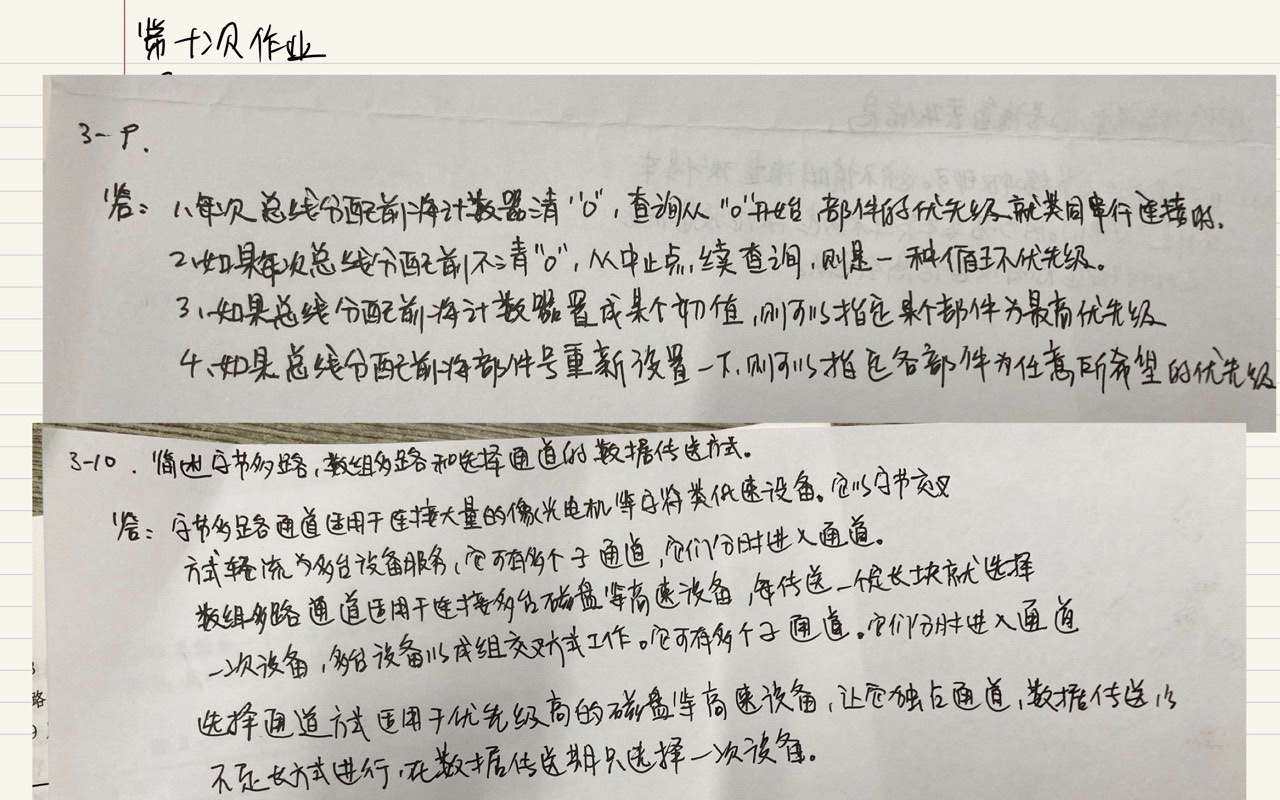 第十次作业
3-9.
答：1、每次总线分配前将计数器清"0"，查询从"0"开始，部件的优先级就类同串行连接时。
2、如果每次总线分配前不清"0"，从中止点续查询，则是一种循环优先级。
3、如果总线分配前将计数器置成某个初值，则可以指定某个部件为最高优先级
4、如果总线分配前将部件号重新设置一下，则可以指定各部件为任意所希望的优先级
3-10．简述字节多路，数组多路和选择通道的数据传送方式。
答：字节多路通道适用于连接大量的像光电机等字符类低速设备。它以字节交叉
方式轮流为多台设备服务，它可有多个子通道，它们分时进入通道。
数组多路通道适用于连接多台磁盘等高速设备，每传送一个定长块就选择
一次设备，多台设备以成组交叉方式工作。它可有多个子通道。它们分时进入通道
选择通道方式适用于优先级高的磁盘等高速设备，让它独占通道，数据传送以
不定长方式进行，在数据传送期只选择一次设备。
路